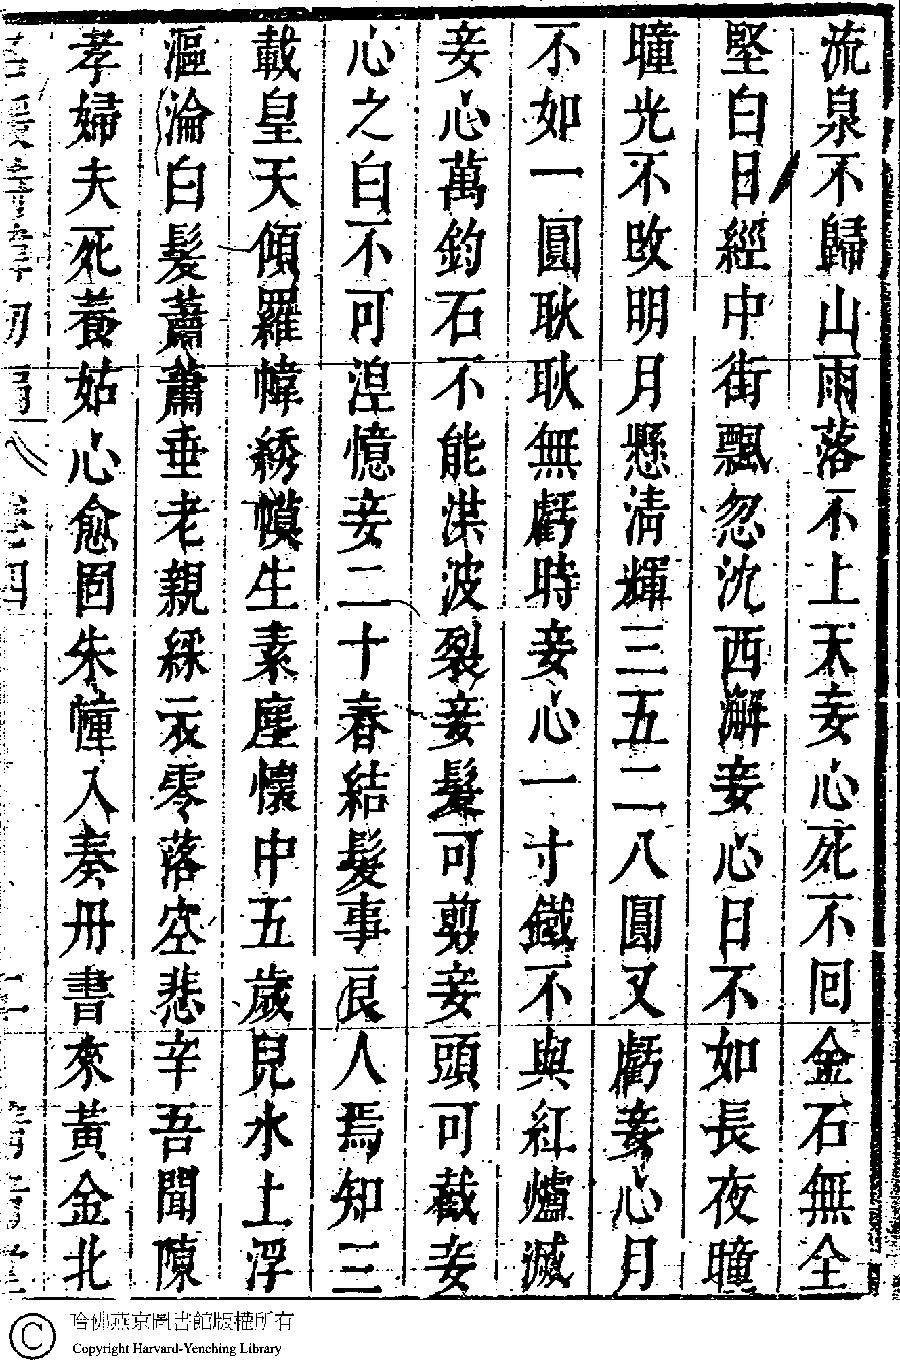 流泉不歸山雨落不上天妾心死不回金石無全
堅白日經中街飄忽沈西澥妾心日不如長夜曈
曈光不改明月懸淸輝三五二八圓又虧妾心月
不如一圓耿耿無虧時妾心一寸鐵不與紅爐滅
妾心萬鈞石不能洪波裂妾髮可剪妾頭可截妾
心之白不可湼憶妾二十春結髮事良人焉知三
載皇天傾羅幃綉幙生素塵懷中五歲兒水上浮
漚淪白髮蕭蕭垂老親綵衣零落空悲辛吾聞陳
孝婦夫死養姑心愈固朱幢入奏冊書來黃金北
卷四
哈佛燕京圖書館版權所有
Copyright Harvard-Yenching Library